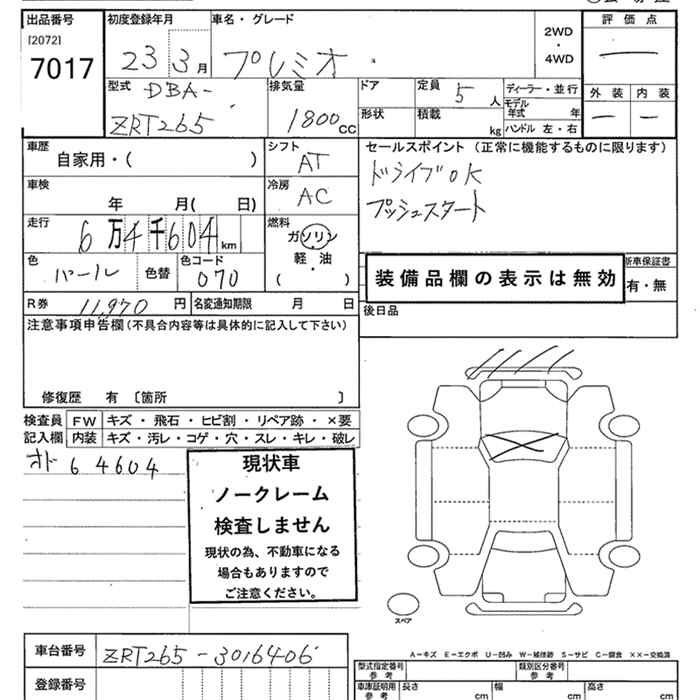 出品番号
[2072]
7017
初度登録年月
23 3月
車名・グレード
プレミオ
2WD
・
4WD
評価点
—
外装 内装
— —
型式 DBA-
ZRT265
排気量
1800cc
ドア
形状
定員 5人
積載 kg
ディーラー・並行
モデル年式 年
ハンドル 左・右
車歴
自家用・( )
シフト
AT
セールスポイント (正常に機能するものに限ります)
ドライブOK
プッシュスタート
車検
年 月( 日)
冷房
AC
走行
6万4千604km
燃料
ガソリン
軽・油
( )
色
パール
色替
色コード
070
装備品欄の表示は無効
新車保証書
有・無
R券 11,970円
名変通知期限 月 日
後日品
注意事項申告欄(不具合内容等は具体的に記入して下さい)
修復歴 有 〔箇所 〕
検査員 FW キズ・飛石・ヒビ割・リペア跡・×要
記入欄 内装 キズ・汚レ・コゲ・穴・スレ・キレ・破レ
オド 64604
現状車
ノークレーム
検査しません
現状の為、不動車になる
場合もありますので
ご注意ください。
スペア
A-キズ E-エクボ U-凹み W-補修跡 S-サビ C-腐食 ××-交換済
車台番号 ZRT265-3016406
登録番号
型式指定番号 参考
類別区分番号 参考
車庫証明用 参考
長さ cm 幅 cm 高さ cm